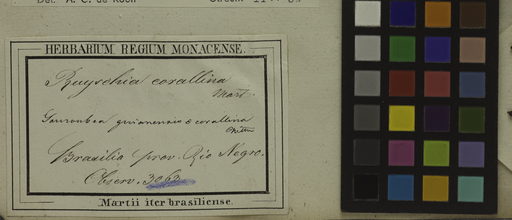 Det. A. C. de Roon
HERBARIUM REGIUM MONACENSE.
Ruyschia corallina
Mart.
Souroubea guianensis δ corallina
Wittm.
Brasilia prov. Rio Negro.
Observ. 3062
Martii iter brasiliense.